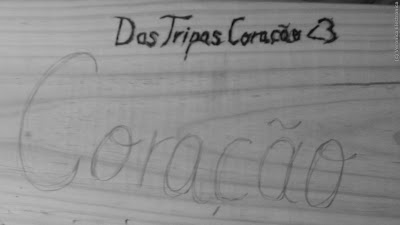 Das Tripas Coração <3
Coração